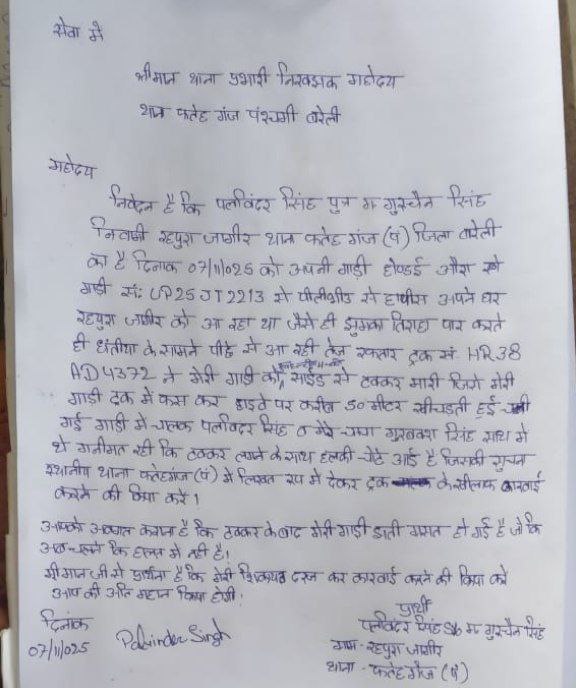 सेवा में
श्रीमान थाना प्रभारी निरक्षक महोदय
थाना फतेह गंज पंश्चमी बरेली
महोदय
निवेदन है कि पलविंदर सिंह पुत्र म गुरुचैन सिंह
निवासी रहपुरा जागीर थाना फतेह गंज (पं) जिला बरेली
का है दिनाक 07/11/025 को अपनी गाडी होण्डई औरा से
गाडी सं: UP25 JT 2213 से पीलीभीत से वापीस अपने घर
रहपुरा जागीर को आ रहा था जैसे ही झुमका तिराहा पार करते
ही धंतीया के सामने पीछे से आ रही तेज रफ्तार ट्रक सं HR 38
AD 4372 ने मेरी गाडी को साईड से टक्कर मारी जिसे मेरी
गाडी ट्रक में फस कर हाइवे पर करीब 50 मीटर खीचडती हुई
गई गाडी में चालक पलविंदर सिंह व मेरे चाचा गुरबक्श सिंह साथ मे
थे गनीमत रही कि टक्कर लगने के साथ हलकी चोटे आई है जिसकी सुचना
स्थानीय थाना फतेहगंज (पं) में लिखत रूप मे देकर ट्रक के खीलाफ कारवाई
करने की क्रिपा करें।
आपको अवगत कराना है कि टक्कर के बाद मेरी गाडी डाती गसत हो गई है जो कि
अब चलने कि हालत मे नही है।
श्रीमान जी से प्रार्थना है कि मेरी शिकायत दरज कर कारवाई करने की क्रिपा करे
आप की अति महान क्रिपा होगी।
प्रार्थी
दिनांक
07/11/025
Palvinder Singh
पलविंदर सिंह S/o म गुरुचैन सिंह
ग्राम - रहपुरा जागीर
थाना - फतेहगंज (पं)